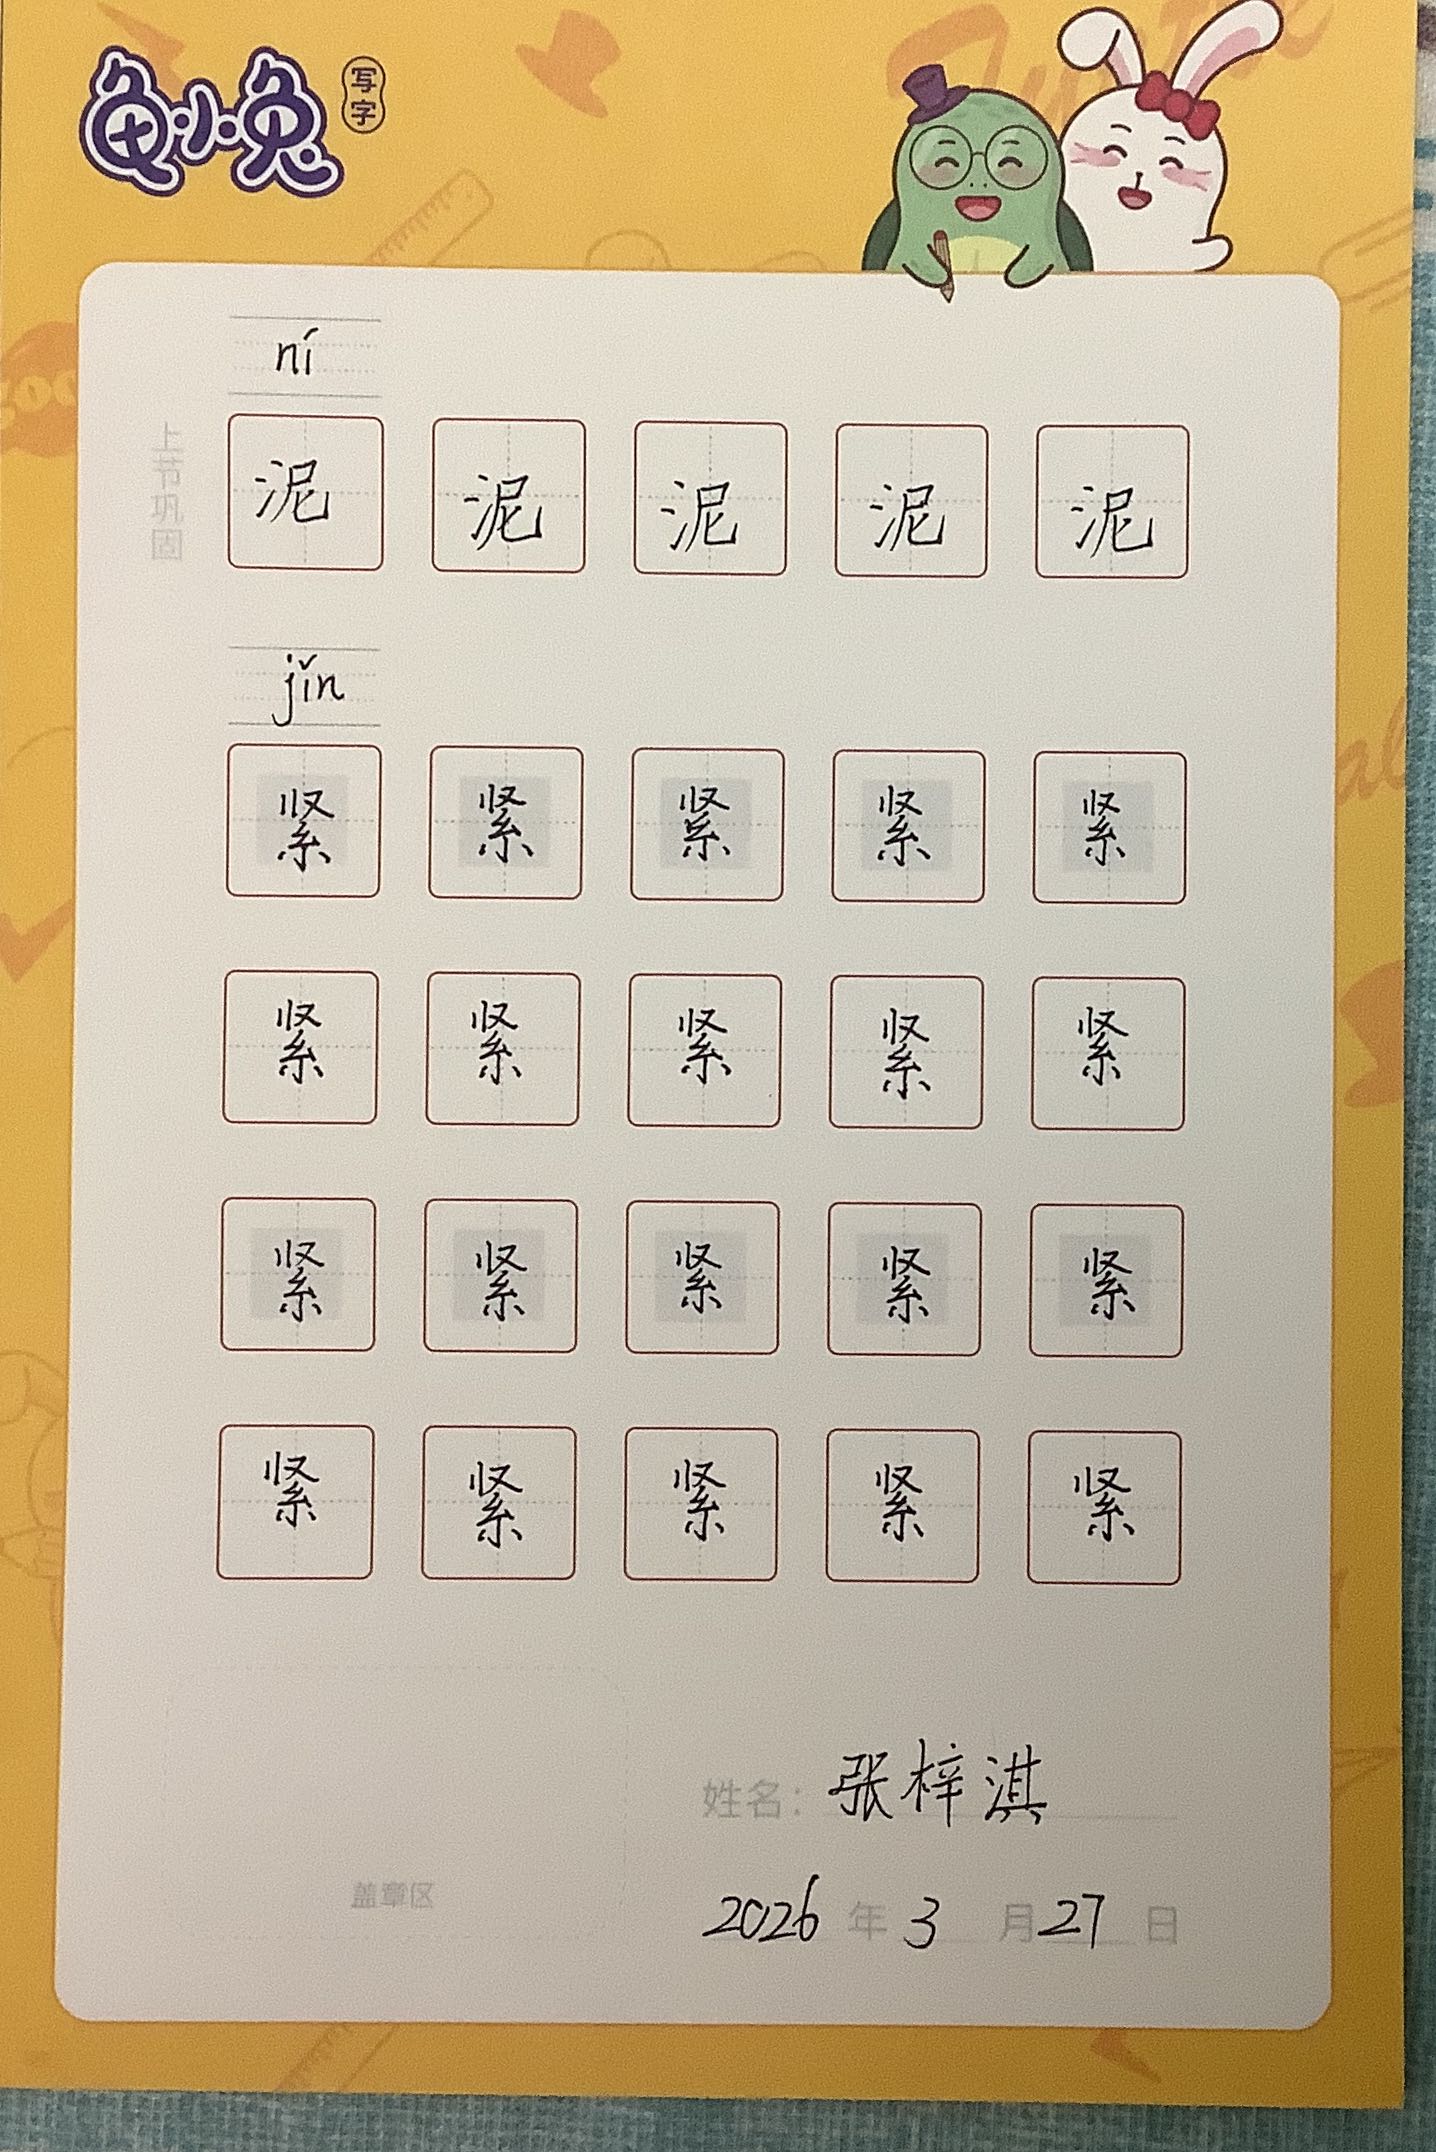 龟小兔 写字
ní
上节巩固
泥 泥 泥 泥 泥
jǐn
紧 紧 紧 紧 紧
紧 紧 紧 紧 紧
紧 紧 紧 紧 紧
紧 紧 紧 紧 紧
姓名：张梓淇
盖章区
2026 年 3 月 27 日